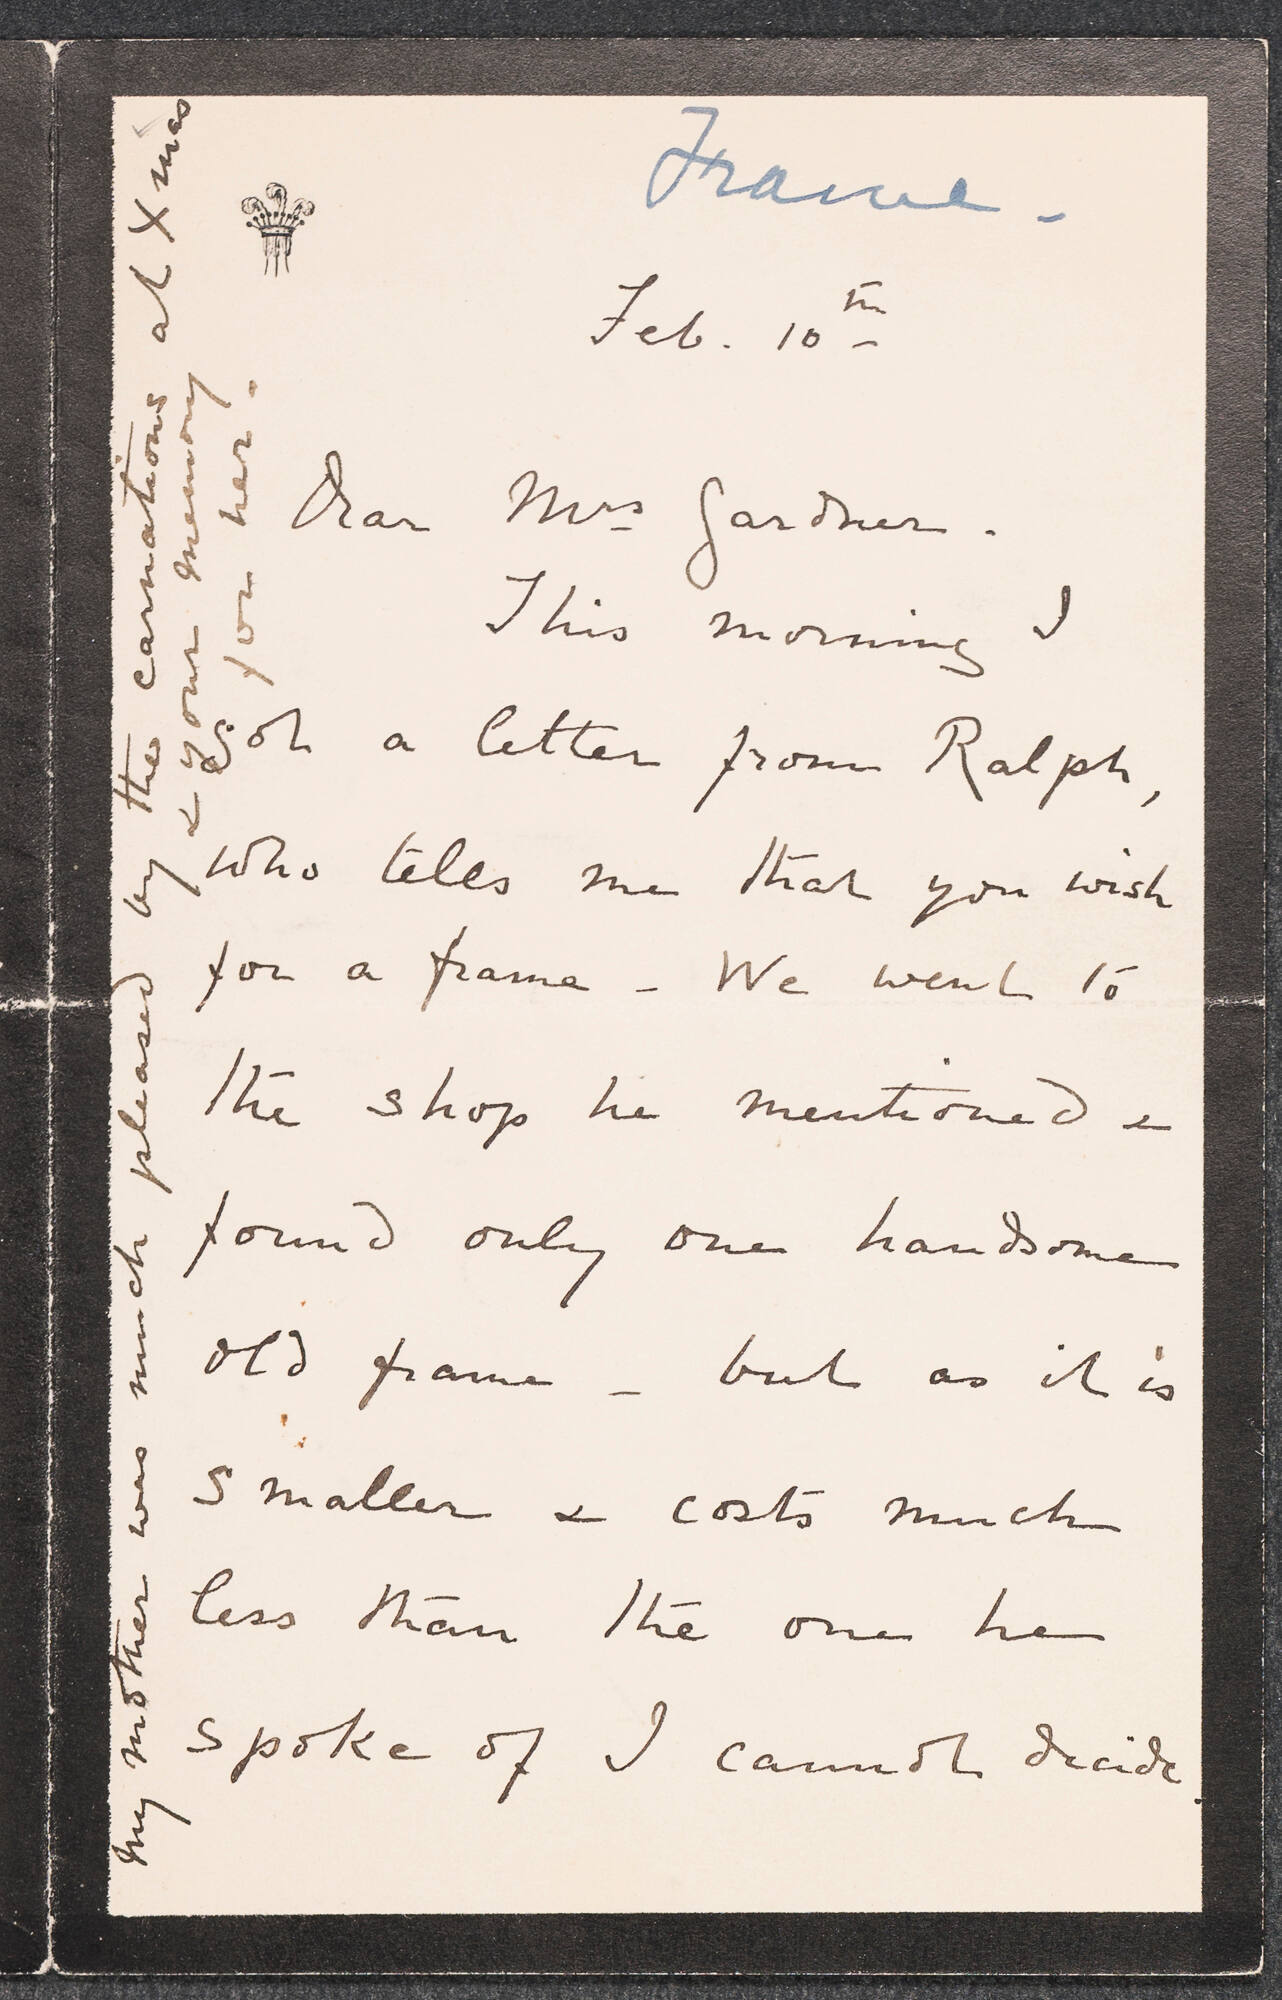 Frame -
Feb. 10th
Dear Mrs Gardner.
This morning I
got a letter from Ralph,
who tells me that you wish
for a frame - We went to
the shop he mentioned &
found only one handsome
old frame - but as it is
smaller & costs much
less than the one he
spoke of I cannot decide.
My mother was much pleased by the carnations at Xmas
& your memory
for her.